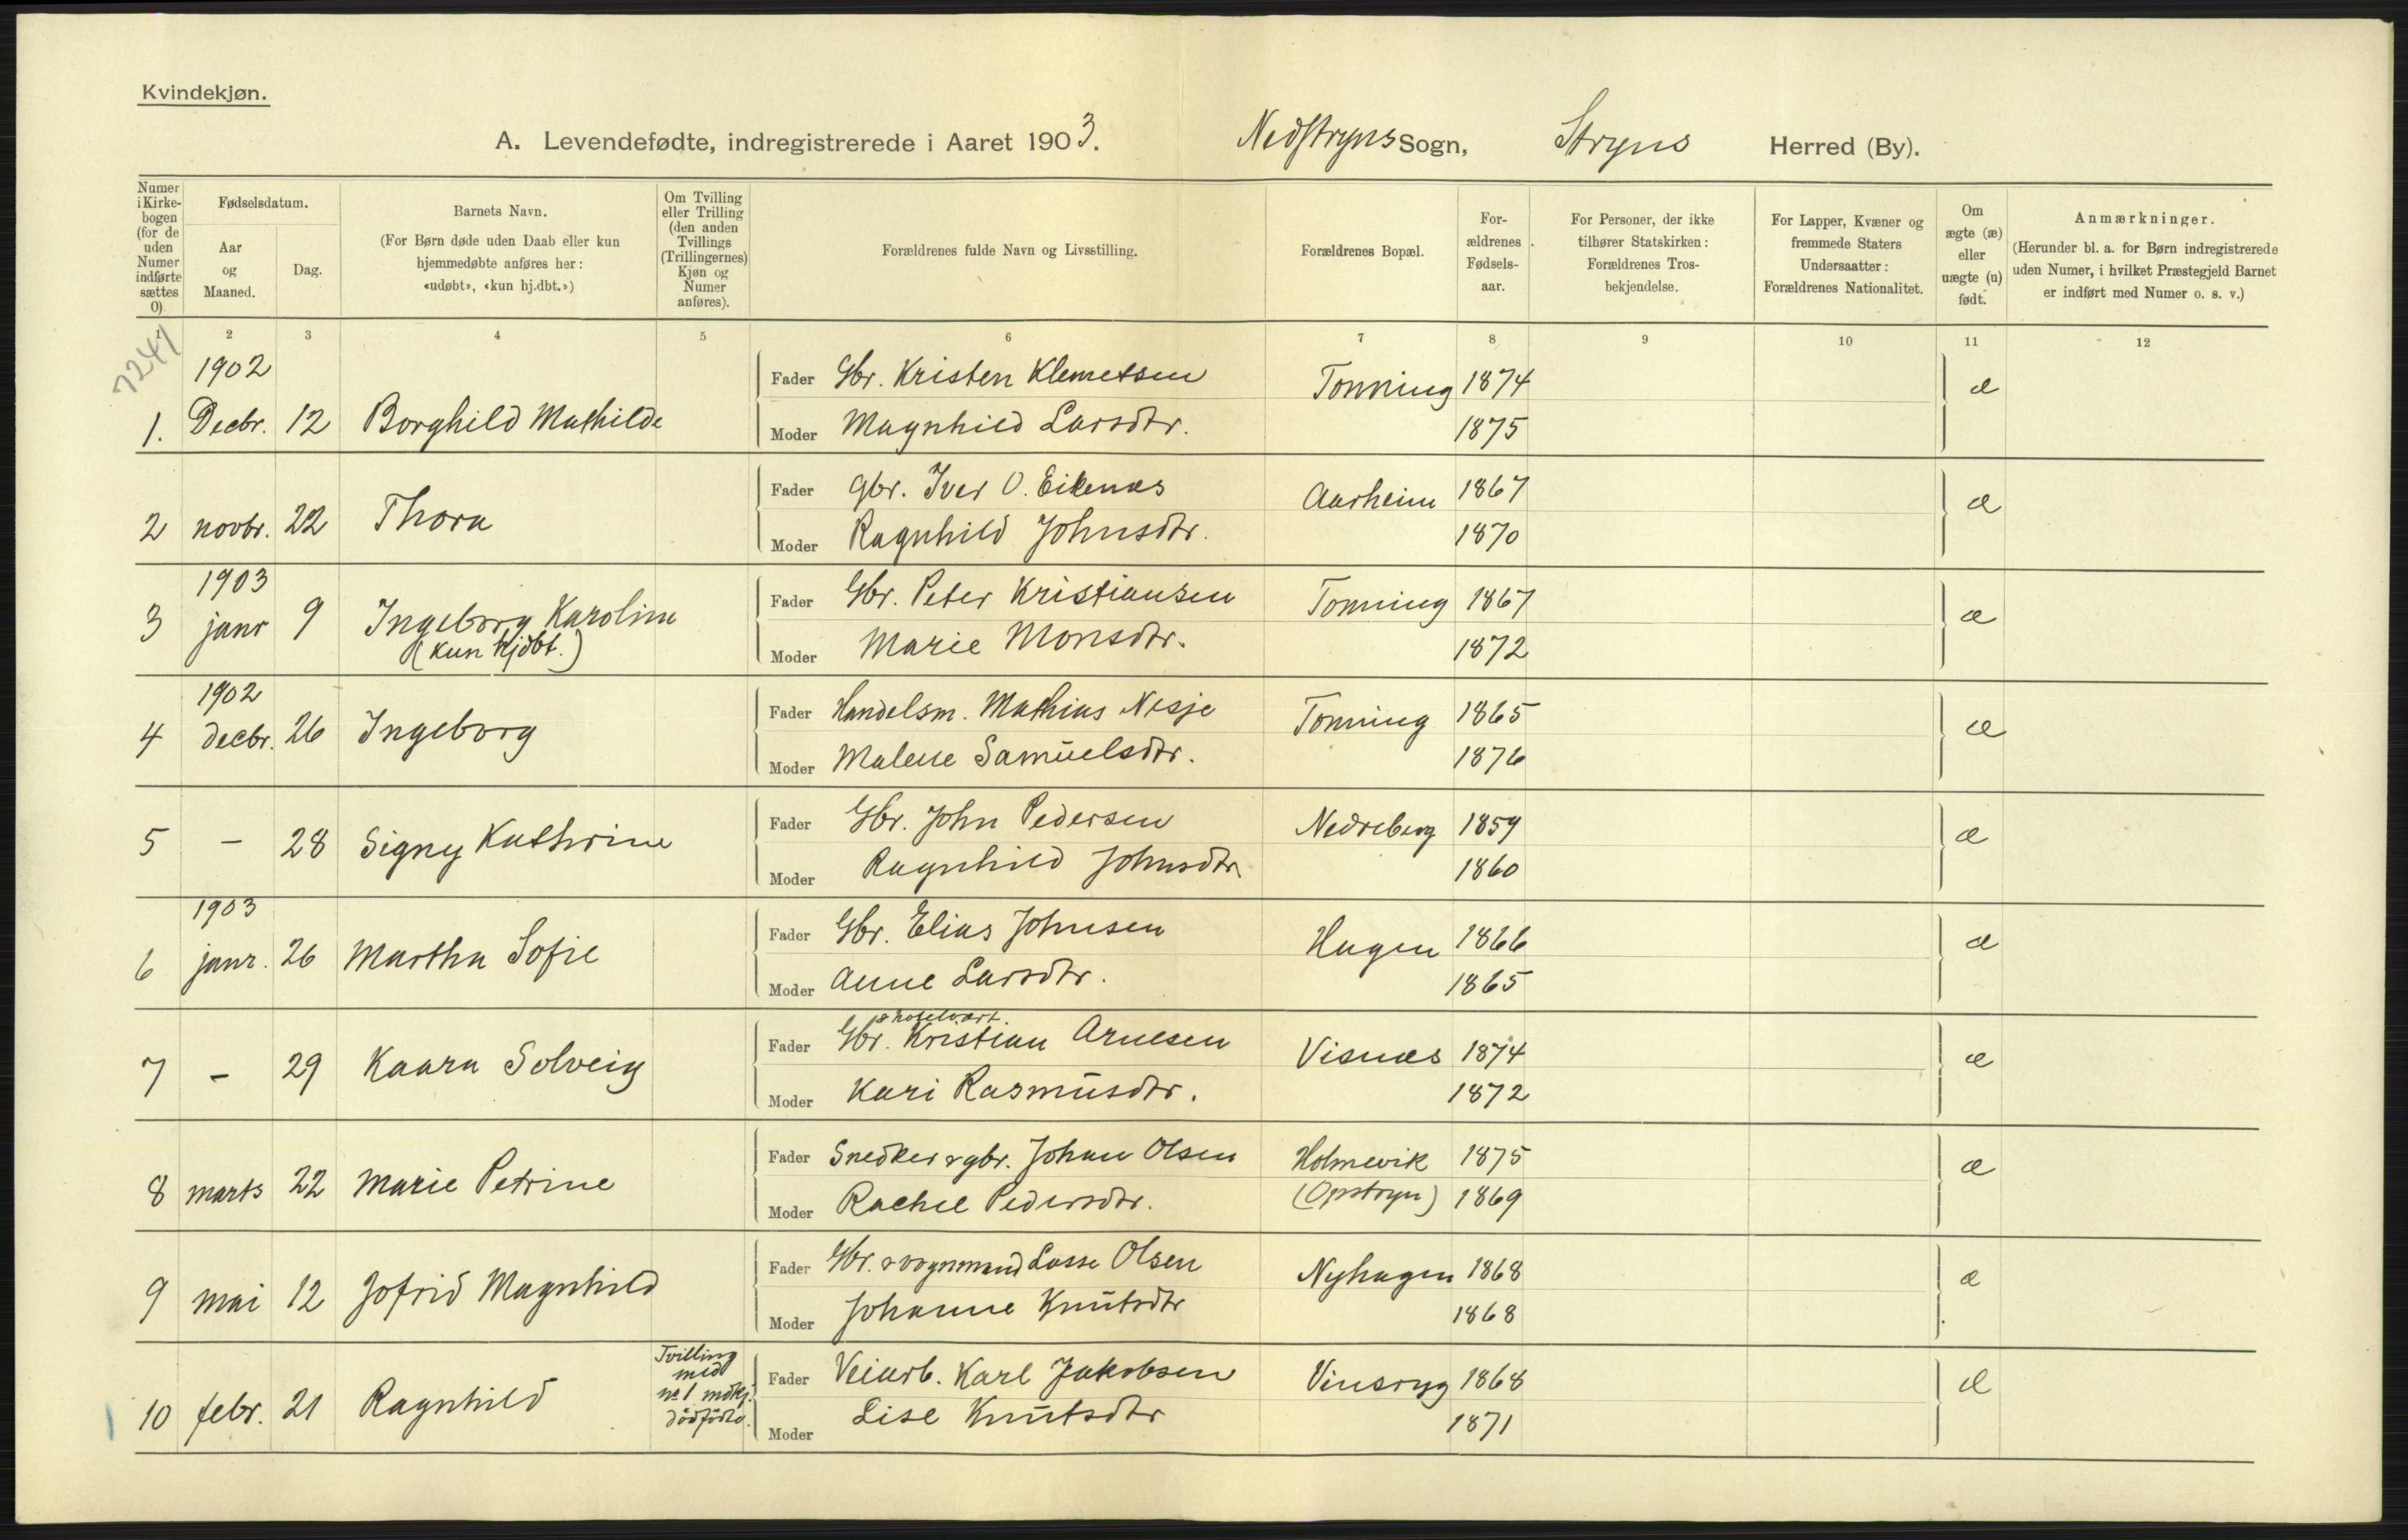 Kvindekjøn.
A. Levendefødte, indregistrerede i Aaret 1903. Nedstryns Sogn, Stryns Herred (By).
Numer i Kirkebogen (for de uden Numer indførte sættes 0).
Fødselsdatum.
Aar og Maaned.
Dag.
Barnets Navn.
(For Børn døde uden Daab eller kun hjemmedøbte anføres her: «udøbt», «kun hj.dbt.»)
Om Tvilling eller Trilling (den anden Tvillings (Trillingernes) Kjøn og Numer anføres).
Forældrenes fulde Navn og Livsstilling.
Forældrenes Bopæl.
Forældrenes Fødselsaar.
For Personer, der ikke tilhører Statskirken: Forældrenes Trosbekjendelse.
For Lapper, Kvæner og fremmede Staters Undersaatter: Forældrenes Nationalitet.
Om ægte (æ) eller uægte (u) født.
Anmærkninger.
(Herunder bl. a. for Børn indregistrerede uden Numer, i hvilket Præstegjeld Barnet er indført med Numer o. s. v.)
1 2 3 4 5 6 7 8 9 10 11 12
7241
1902
Fader Gbr. Kristen Klemetsen Tonning 1874 æ
1. Decbr. 12 Borghild Mathilde
Moder Magnhild Larsdtr. 1875
Fader Gbr. Iver O. Eikenæs Aarheim 1867 æ
2 novbr. 22 Thora
Moder Ragnhild Johnsdtr. 1870
1903
Fader Gbr. Peter Kristiansen Tonning 1867 æ
3 janr 9 Ingeborg Karoline
(kun hjdbt.)
Moder Marie Monsdtr. 1872
1902
Fader Handelsm. Mathias Nesje Tonning 1865 æ
4 decbr. 26 Ingeborg
Moder Malene Samuelsdtr. 1876
Fader Gbr. John Pedersen Nedreberg 1859 æ
5 – 28 Signy Kathrine
Moder Ragnhild Johnsdtr 1860
1903
Fader Gbr. Elias Johnsen Hagen 1866 æ
6 janr. 26 Martha Sofie
Moder Anne Larsdtr. 1865
& hotelvært
Fader Gbr. Kristian Arnesen Visnæs 1874 æ
7 – 29 Kaara Solveig
Moder Kari Rasmusdtr. 1872
Fader Snedker & gbr. Johan Olsen Holmevik 1875 æ
8 marts 22 Marie Petrine
Moder Rachel Pedersdtr. (Opstryn) 1869
Fader Gbr. & vognmand Lasse Olsen Nyhagen 1868 æ
9 mai 12 Jofrid Magnhild
Moder Johanne Knutsdtr 1868
Tvilling
med
no 1 mdkj.
dødfødte.
Fader Veiarb. Karl Jakobsen Vinsryg 1868 æ
10 febr. 21 Ragnhild
Moder Lise Knutsdtr 1871